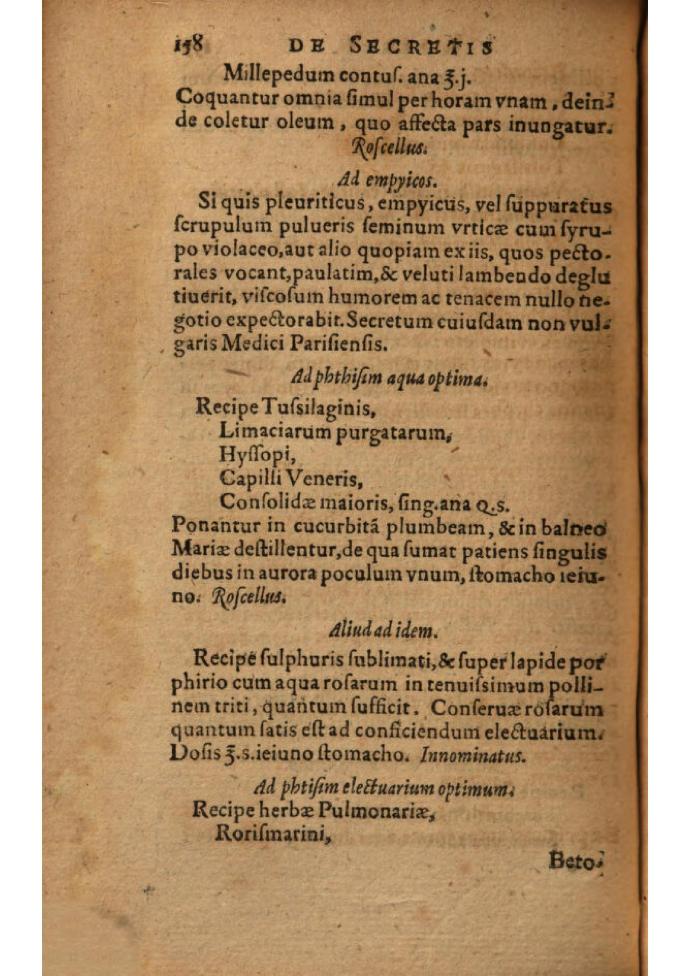 158 DE SECRETIS
Millepedum contuſ. ana ʒ.j.
Coquantur omnia ſimul per horam vnam, dein-
de coletur oleum, quo affecta pars inungatur.
Roſcellus.
Ad empyicos.
Si quis pleuriticus, empyicus, vel ſuppuratus
ſcrupulum pulueris ſeminum vrticæ cum ſyru-
po violaceo, aut alio quopiam ex iis, quos pecto-
rales vocant, paulatim, & veluti lambendo deglu
tiuerit, viſcoſum humorem ac tenacem nullo ne-
gotio expectorabit. Secretum cuiuſdam non vul-
garis Medici Pariſienſis.
Ad phthiſim aqua optima.
Recipe Tuſsilaginis,
Limaciarum purgatarum,
Hyſſopi,
Capilli Veneris,
Conſolidæ maioris, ſing. ana Q.s.
Ponantur in cucurbitã plumbeam, & in balneo
Mariæ deſtillentur, de qua ſumat patiens ſingulis
diebus in aurora poculum vnum, ſtomacho ieiu-
no. Roſcellus.
Aliud ad idem.
Recipe ſulphuris ſublimati, & ſuper lapide por
phirio cum aqua roſarum in tenuiſsimum polli-
nem triti, quantum ſufficit. Conſeruæ roſarum
quantum ſatis eſt ad conficiendum electuarium.
Doſis ʒ.s. ieiuno ſtomacho. Innominatus.
Ad phtiſim electuarium optimum.
Recipe herbæ Pulmonariæ,
Roriſmarini,
Beto-